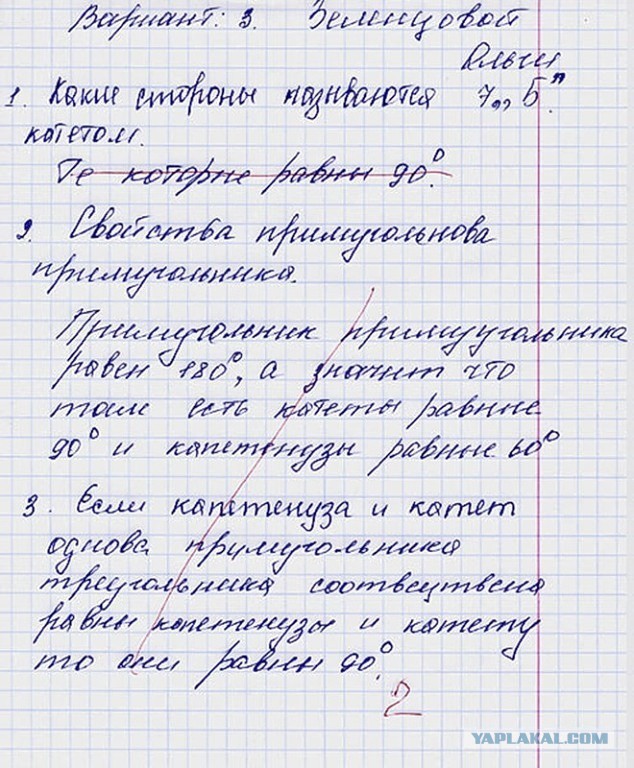 Вариант: 3. Земцовой
Ольги
1. Какие стороны называются 7 „Б"
катетом.
Те которые равны 90°.
2. Свойства примуголькова
примуголькика.
Примугольник примуугольника
равен 180°, а значит что
там есть катеты равные
90° и капетенузы равные 60°
3. Если капетенуза и катет
однова примугольника
треугольника соотвсцтвена
равны капетенузы и катету
то они равны 90°.
2
YAPLAKAL.COM